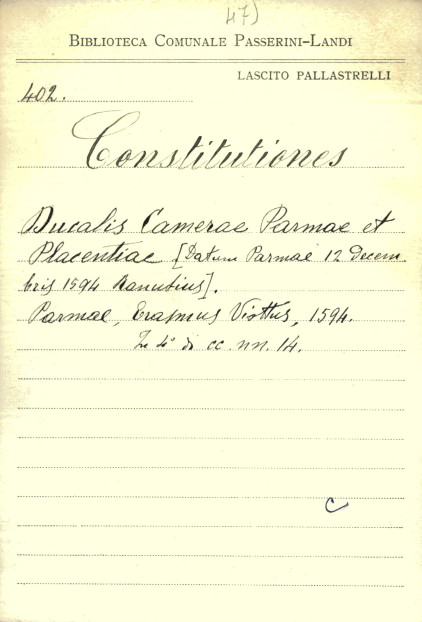 47)
BIBLIOTECA COMUNALE PASSERINI-LANDI
LASCITO PALLASTRELLI
402.
Constitutiones
Ducalis Camerae Parmae et
Placentiae [Datum Parmae 12 Decem
bris 1594 Ranutius].
Parmae, Erasmus Viottus, 1594.
In 4° di cc. nn. 14.
C